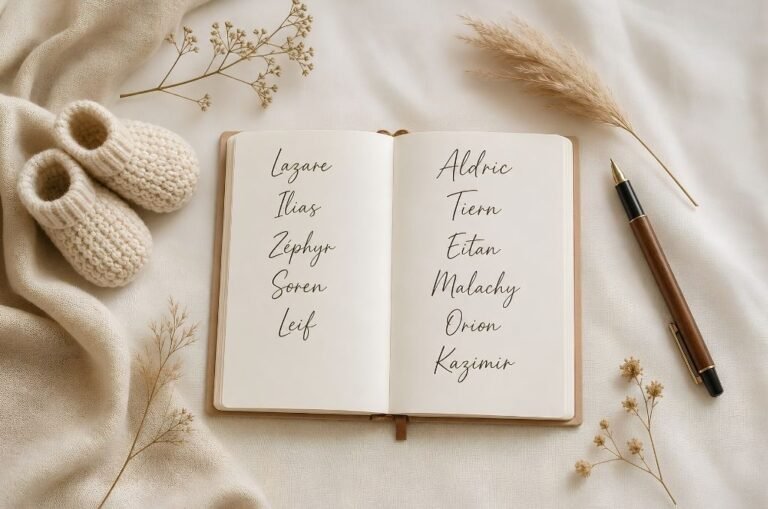 Lazare
Ilias
Zéphyr
Soren
Leif
Aldric
Tiern
Eitan
Malachy
Orion
Kazimir